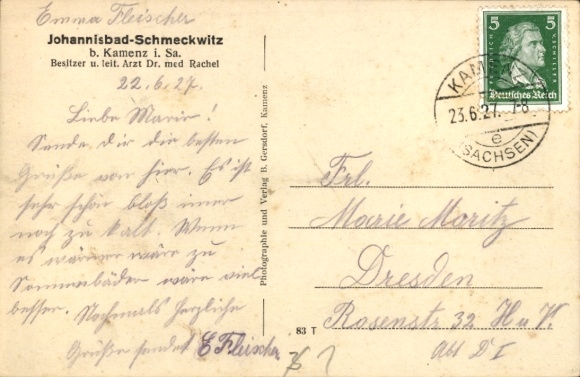 Emma Fleischer
Johannisbad-Schmeckwitz
b. Kamenz i. Sa.
Besitzer u. leit. Arzt Dr. med Rachel
22.6.27.
Liebe Marie!
Sende dir die besten
Grüße von hier. Es ist
sehr schön bloß immer
noch zu kalt. Wenn
es wärmer wäre zu
Sonnenbäder wäre viel
besser. Nochmals herzliche
Grüße sendet E Fleischer
Photographie und Verlag B. Gersdorf, Kamenz
83 T
5 5
Deutsches Reich
KAMENZ
23.6.27. 7-8
e
(SACHSEN)
Frl.
Marie Moritz
Dresden
Rosenstr 32 H u V.
Abt D I